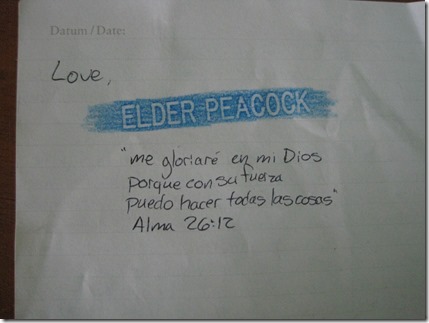 Datum / Date:
Love,
ELDER PEACOCK
"me gloriaré en mi Dios
porque con su fuerza
puedo hacer todas las cosas"
Alma 26:12